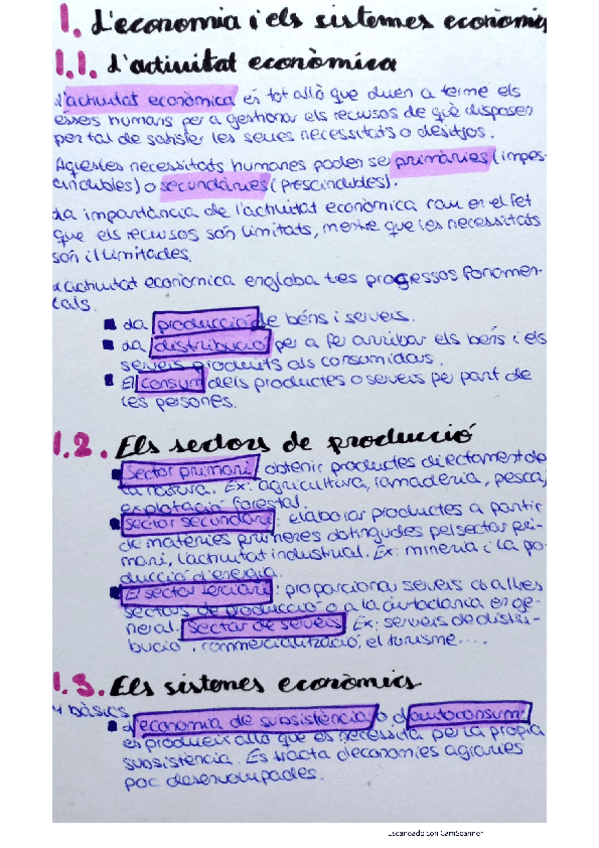 1. L'economia i els sistemes econòmics
1.1. L'activitat econòmica
L'activitat econòmica és tot allò que duen a terme els
essers humans per a gestionar els recursos de què disposen
per tal de satisfer les seues necessitats o desitjos.
Aquestes necessitats humanes poden ser primàries (impres-
cindibles) o secundàries (prescindibles).
La importància de l'activitat econòmica rau en el fet
que els recursos són limitats, mentre que les necessitats
són il·limitades.
L'activitat econòmica engloba tres processos fonamen-
tals.
La producció de béns i serveis.
La distribució per a fer arribar els bens i els
serveis produits als consumidors.
El consum dels productes o serveis per part de
les persones.
1.2. Els sectors de producció
Sector primari, obtenir productes directament de
la natura. Ex: agricultura, ramaderia, pesca,
explotació forestal.
Sector secundari: elaborar productes a partir
de matèries primeres obtingudes pel sector pri-
mari, l'activitat industrial. Ex: mineria i la pro-
ducció d'energia.
El sector terciari: proporciona serveis als altres
sectors de producció o a la ciutadania en ge-
neral. Sector de serveis. Ex: serveis de distri-
bució, comercialització, el turisme....
1.3. Els sistemes econòmics
4 bàsics
L'economia de subsistència o d'autoconsum
es produeix allò que es necessita per la pròpia
subsistència. Es tracta d'economies agràries
poc desenvolupades.
Escaneado con CamScanner